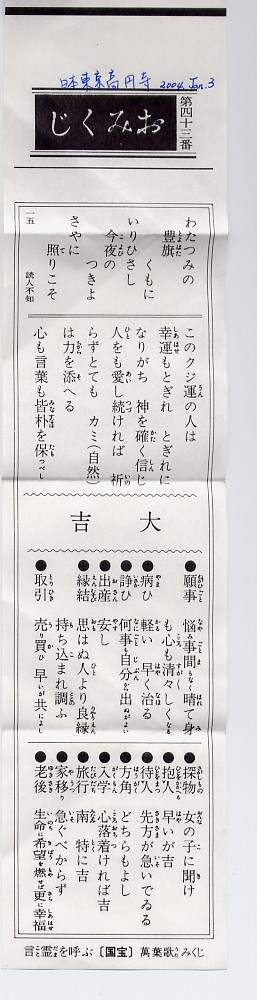 日本東京高円寺 2004. Jan. 3
第四十三番
おみくじ
わたつみの
豊旗
くもに
いりひさし
今夜の
つきよ
さやに
照りこそ
一五 読人不知
このクジ運の人は
幸運もとぎれ とぎれに
なりがち 神を確く信じ
人をも愛し続ければ 祈
らずとても カミ(自然)
は力を添へる
心も言葉も皆朴を保つべし
大吉
●願事 悩み事間もなく晴て身
も心も清々しくなる
●病ひ 軽い 早く治る
●諍ひ 何事も自分から出ぬがよい
●出産 安し
●縁結 思はぬ人より良縁
持ち込まれ調ふ
●取引 売り買ひ 早いが共によし
●探物 女の子に聞け
●抱人 早いが吉
●待人 先方が急いでゐる
●方角 どちらもよし
●入学 心落着ければ吉
●旅行 南 特に吉
●家移り 急ぐべからず
●老後 生命に希望を燃せば更に幸福
言霊を呼ぶ〔国宝〕萬葉歌みくじ